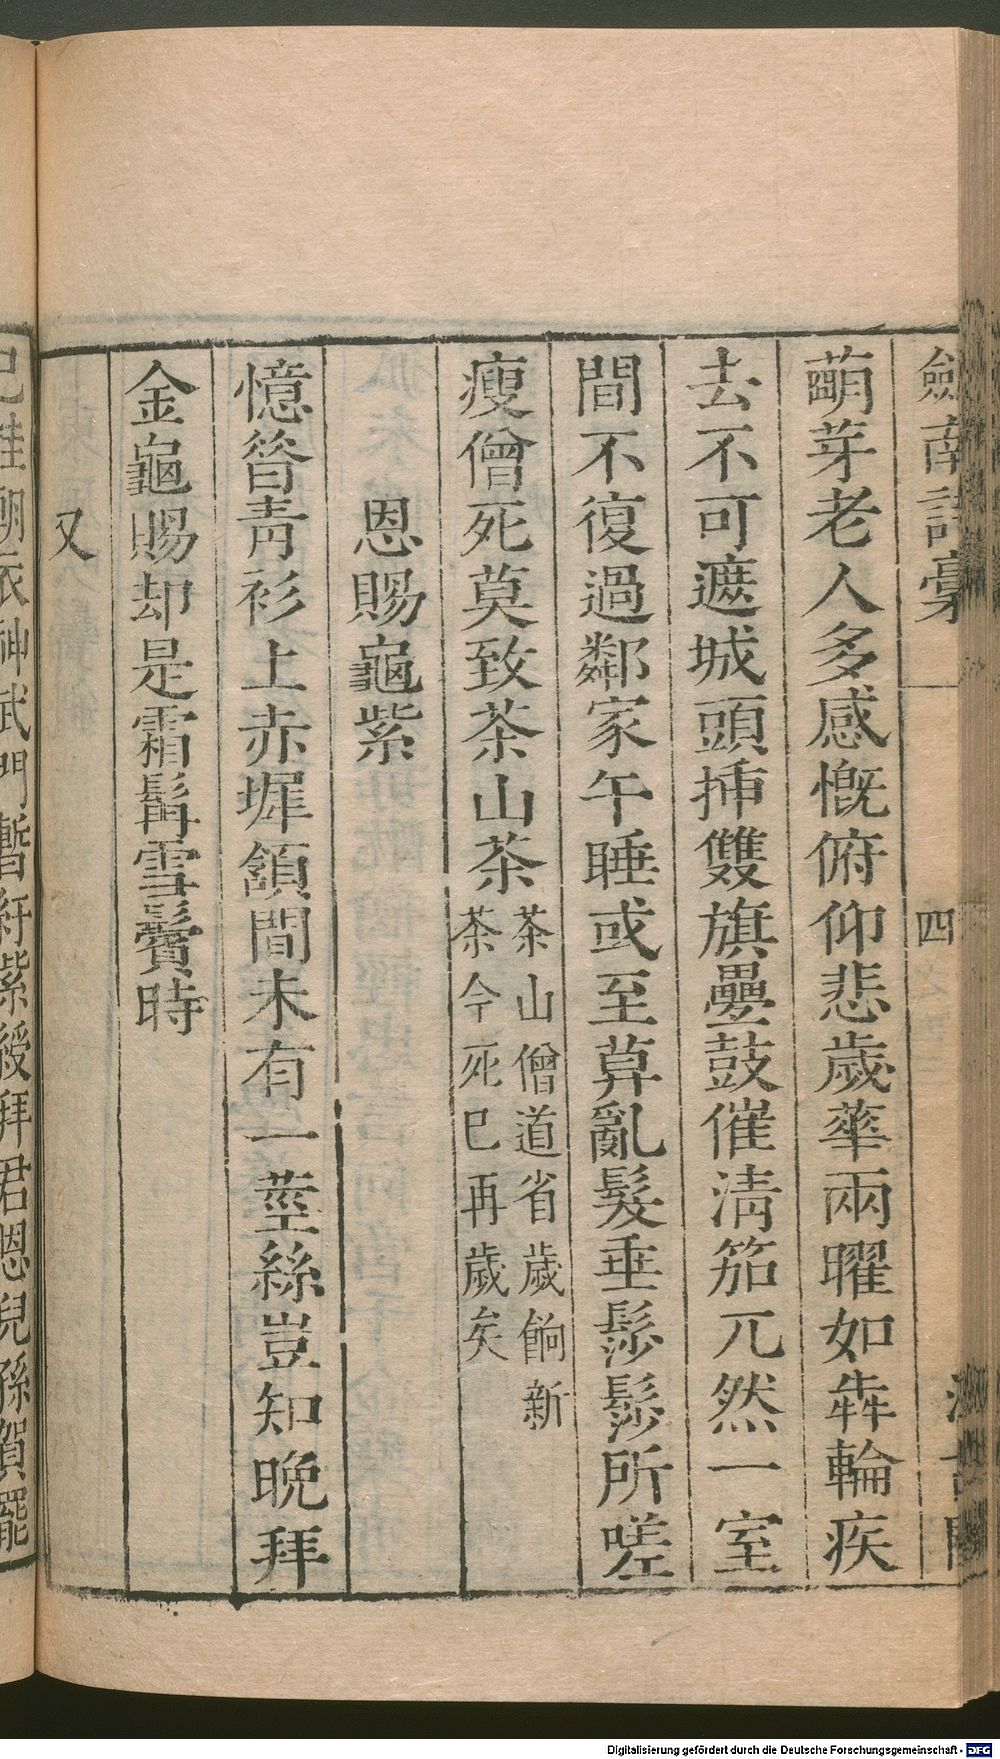 劍南詩稾
四
萠芽老人多感慨俯仰悲歲華兩曜如犇輪疾
去不可遮城頭揷雙旗疊鼓催淸笳兀然一室
間不復過鄰家午睡或至莫亂髮垂鬖鬖所嗟
瘦僧死莫致茶山茶
茶山僧道省歲餉新
茶今死巳再歲矣
恩賜龜紫
憶昝靑衫上赤墀頷間未有一莖絲豈知晚拜
金龜賜却是霜髯雪鬢時
又
巳挂朝衣神武門暫紆紫綬拜君恩兒孫賀罷
Digitalisierung gefördert durch die Deutsche Forschungsgemeinschaft - DFG